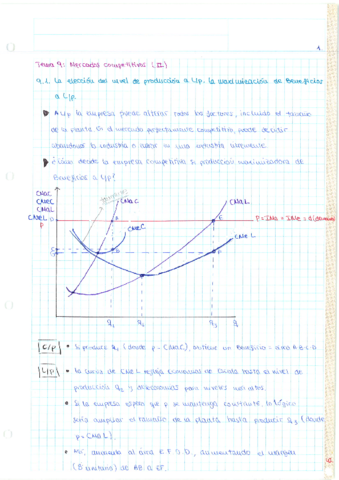 1.
Tema 9: Mercados competitivos (II)
9.1. La elección del nivel de producción a L/p. La maximización de Beneficios
a L/p.
A L/p la empresa puede alterar todos los factores, incluido el tamaño
de la planta. En el mercado perfectamente competitivo, puede decidir
abandonar la industria o entrar en una industria
¿Cómo decide la empresa competitiva su producción maximizadora de
Beneficios a L/p?
CMaC
CMeC
CMaL
CMeL
P
CMaC
CMeC
CMaL
CMeL
D
A
E
C
B
G
F
P = IMa = IMe = d (demanda)
q1
q2
q3
q
C/p
Si produce q1 (donde p = CMaC), obtiene un Beneficio = área ABCD.
L/p
La curva de CMeL refleja economías de escala hasta el nivel de
producción q2 y deseconomías para niveles mayores.
Si la empresa espera que p se mantenga constante, lo lógico
sería ampliar el tamaño de la planta hasta producir q3 (donde
p = CMaL).
Así, aumenta al área EFGD, aumentando el margen
(B unitario) de AB a EF.